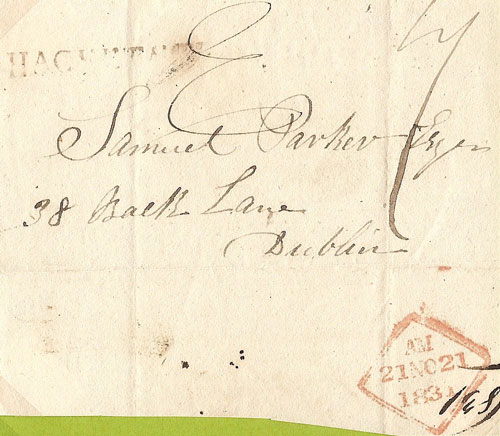 Samuel Parker Esqr
38 Back Lane
Dublin
AM
21 NO 21
1831